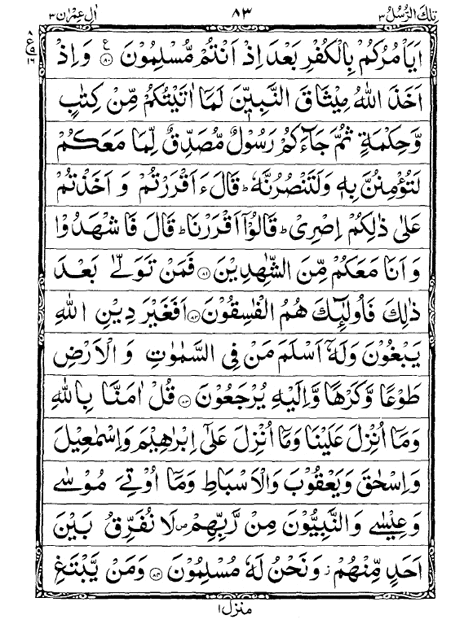 تلك الرسل ٣ ٨٣ اٰل عمرٰن ٣
اَيَاْمُرُكُمْ بِالْكُفْرِ بَعْدَ اِذْ اَنْتُمْ مُّسْلِمُوْنَ ۝٨٠ وَاِذْ
اَخَذَ اللّٰهُ مِيْثَاقَ النَّبِيّٖنَ لَمَاۤ اٰتَيْتُكُمْ مِّنْ كِتٰبٍ
وَّحِكْمَةٍ ثُمَّ جَآءَكُمْ رَسُوْلٌ مُّصَدِّقٌ لِّمَا مَعَكُمْ
لَتُؤْمِنُنَّ بِهٖ وَلَتَنْصُرُنَّهٗ ؕ قَالَ ءَاَقْرَرْتُمْ وَ اَخَذْتُمْ
عَلٰى ذٰلِكُمْ اِصْرِيْ ؕ قَالُوْۤا اَقْرَرْنَا ؕ قَالَ فَاشْهَدُوْا
وَ اَنَا مَعَكُمْ مِّنَ الشّٰهِدِيْنَ ۝٨١ فَمَنْ تَوَلّٰى بَعْدَ
ذٰلِكَ فَاُولٰٓئِكَ هُمُ الْفٰسِقُوْنَ ۝٨٢ اَفَغَيْرَ دِيْنِ اللّٰهِ
يَبْغُوْنَ وَلَهٗۤ اَسْلَمَ مَنْ فِي السَّمٰوٰتِ وَ الْاَرْضِ
طَوْعًا وَّكَرْهًا وَّاِلَيْهِ يُرْجَعُوْنَ ۝٨٣ قُلْ اٰمَنَّا بِاللّٰهِ
وَمَاۤ اُنْزِلَ عَلَيْنَا وَمَاۤ اُنْزِلَ عَلٰۤى اِبْرٰهِيْمَ وَاِسْمٰعِيْلَ
وَاِسْحٰقَ وَيَعْقُوْبَ وَالْاَسْبَاطِ وَمَاۤ اُوْتِيَ مُوْسٰى
وَعِيْسٰى وَالنَّبِيُّوْنَ مِنْ رَّبِّهِمْ ۪ لَا نُفَرِّقُ بَيْنَ
اَحَدٍ مِّنْهُمْ ؗ وَنَحْنُ لَهٗ مُسْلِمُوْنَ ۝٨٤ وَمَنْ يَّبْتَغِ
منزل ١